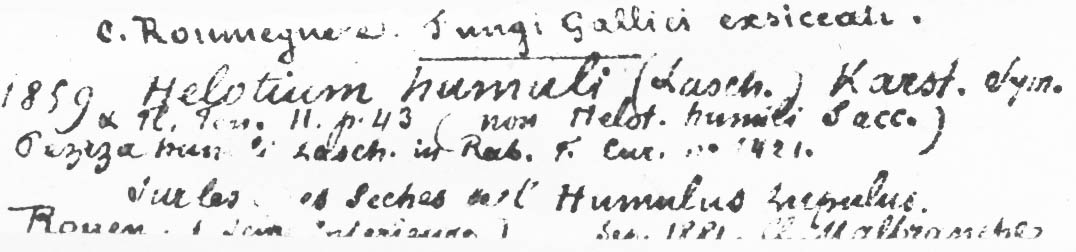 C. Roumeguere. Fungi Gallici exsiccati.
1859 Helotium humuli (Lasch.) Karst. Sym.
p. 43 (non Helot. humuli Sacc.)
Peziza humuli Lasch. in Rab. F. Eur. no 1421.
Sur les seches de l' Humulus Lupulus.
Rouen. (Seine Inferieure) 1881. Malbranche